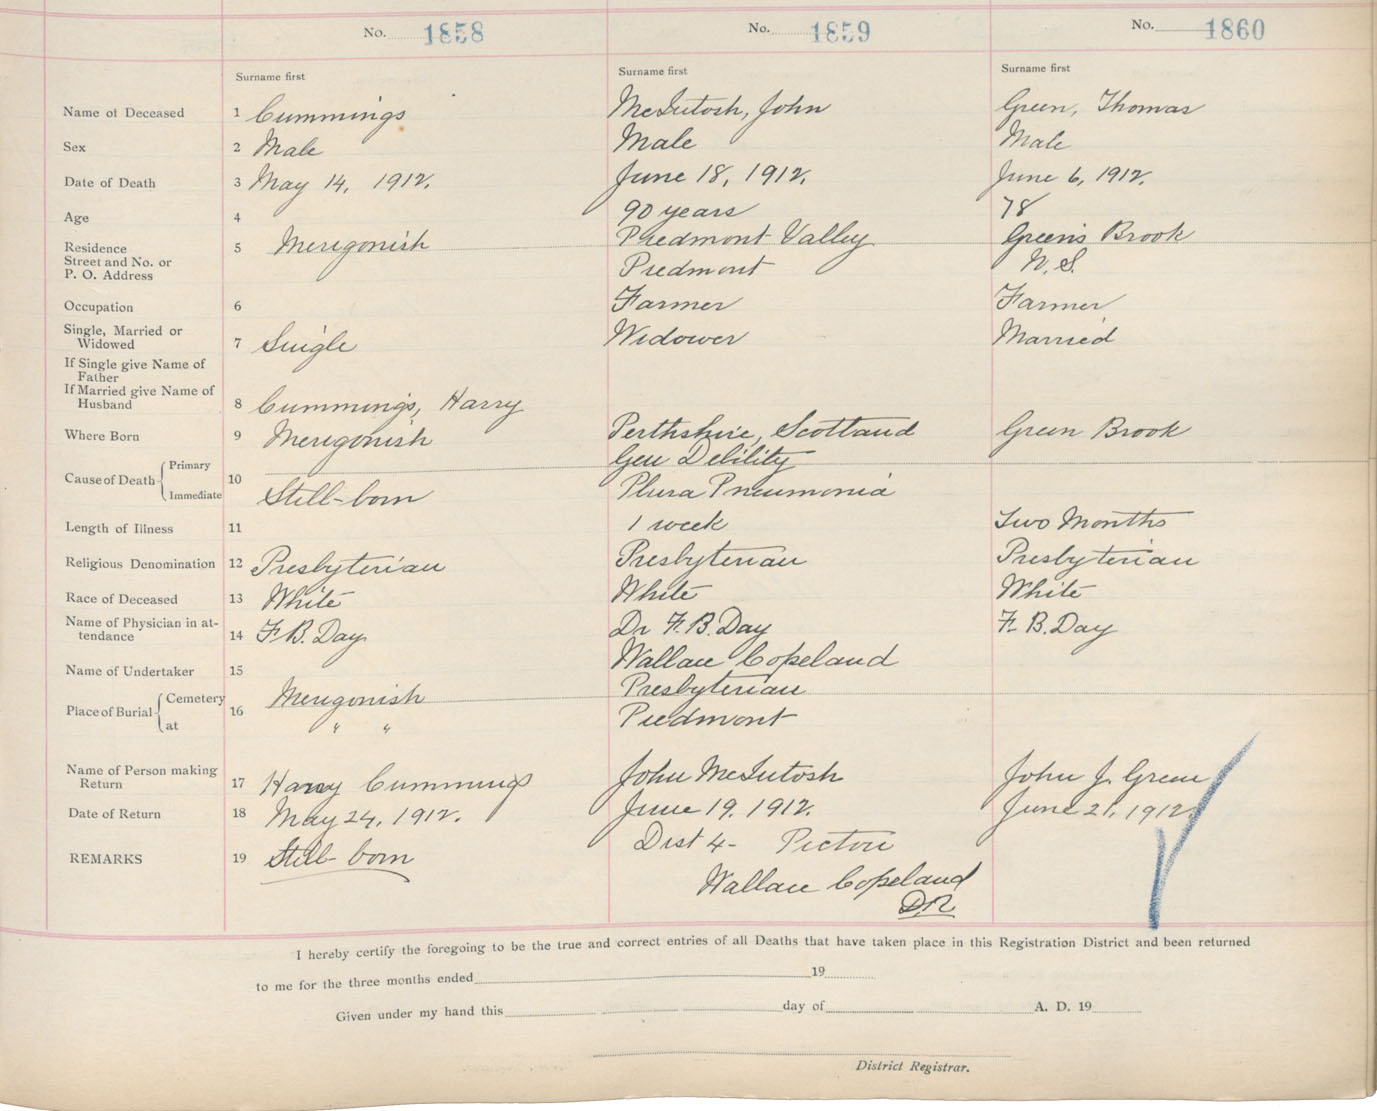 No. 1858 No. 1859 No. 1860
Surname first Surname first Surname first
Name of Deceased 1 Cummings McIntosh, John Green, Thomas
Sex 2 Male Male Male
Date of Death 3 May 14, 1912. June 18, 1912. June 6, 1912.
Age 4 90 years 78
Residence 5 Merigonish Piedmont Valley Green's Brook
Street and No. or
P. O. Address Piedmont N.S.
Occupation 6 Farmer Farmer
Single, Married or
Widowed 7 Single Widower Married
If Single give Name of
Father
If Married give Name of
Husband 8 Cummings, Harry
Where Born 9 Merigonish Perthshire, Scotland Green Brook
Cause of Death Primary 10 Gen Debility
Immediate Still-born Plura Pneumonia
Length of Illness 11 1 week Two Months
Religious Denomination 12 Presbyterian Presbyterian Presbyterian
Race of Deceased 13 White White White
Name of Physician in at-
tendance 14 F. B. Day Dr F. B. Day F. B. Day
Name of Undertaker 15 Wallace Copeland
Place of Burial Cemetery 16 Merigonish Presbyterian
at " " Piedmont
Name of Person making
Return 17 Harry Cummings John McIntosh John J. Green
Date of Return 18 May 24, 1912. June 19, 1912. June 21, 1912
REMARKS 19 Still-born Dist 4- Pictou
Wallace Copeland
D.R.
I hereby certify the foregoing to be the true and correct entries of all Deaths that have taken place in this Registration District and been returned
to me for the three months ended 19
Given under my hand this day of A. D. 19
District Registrar.